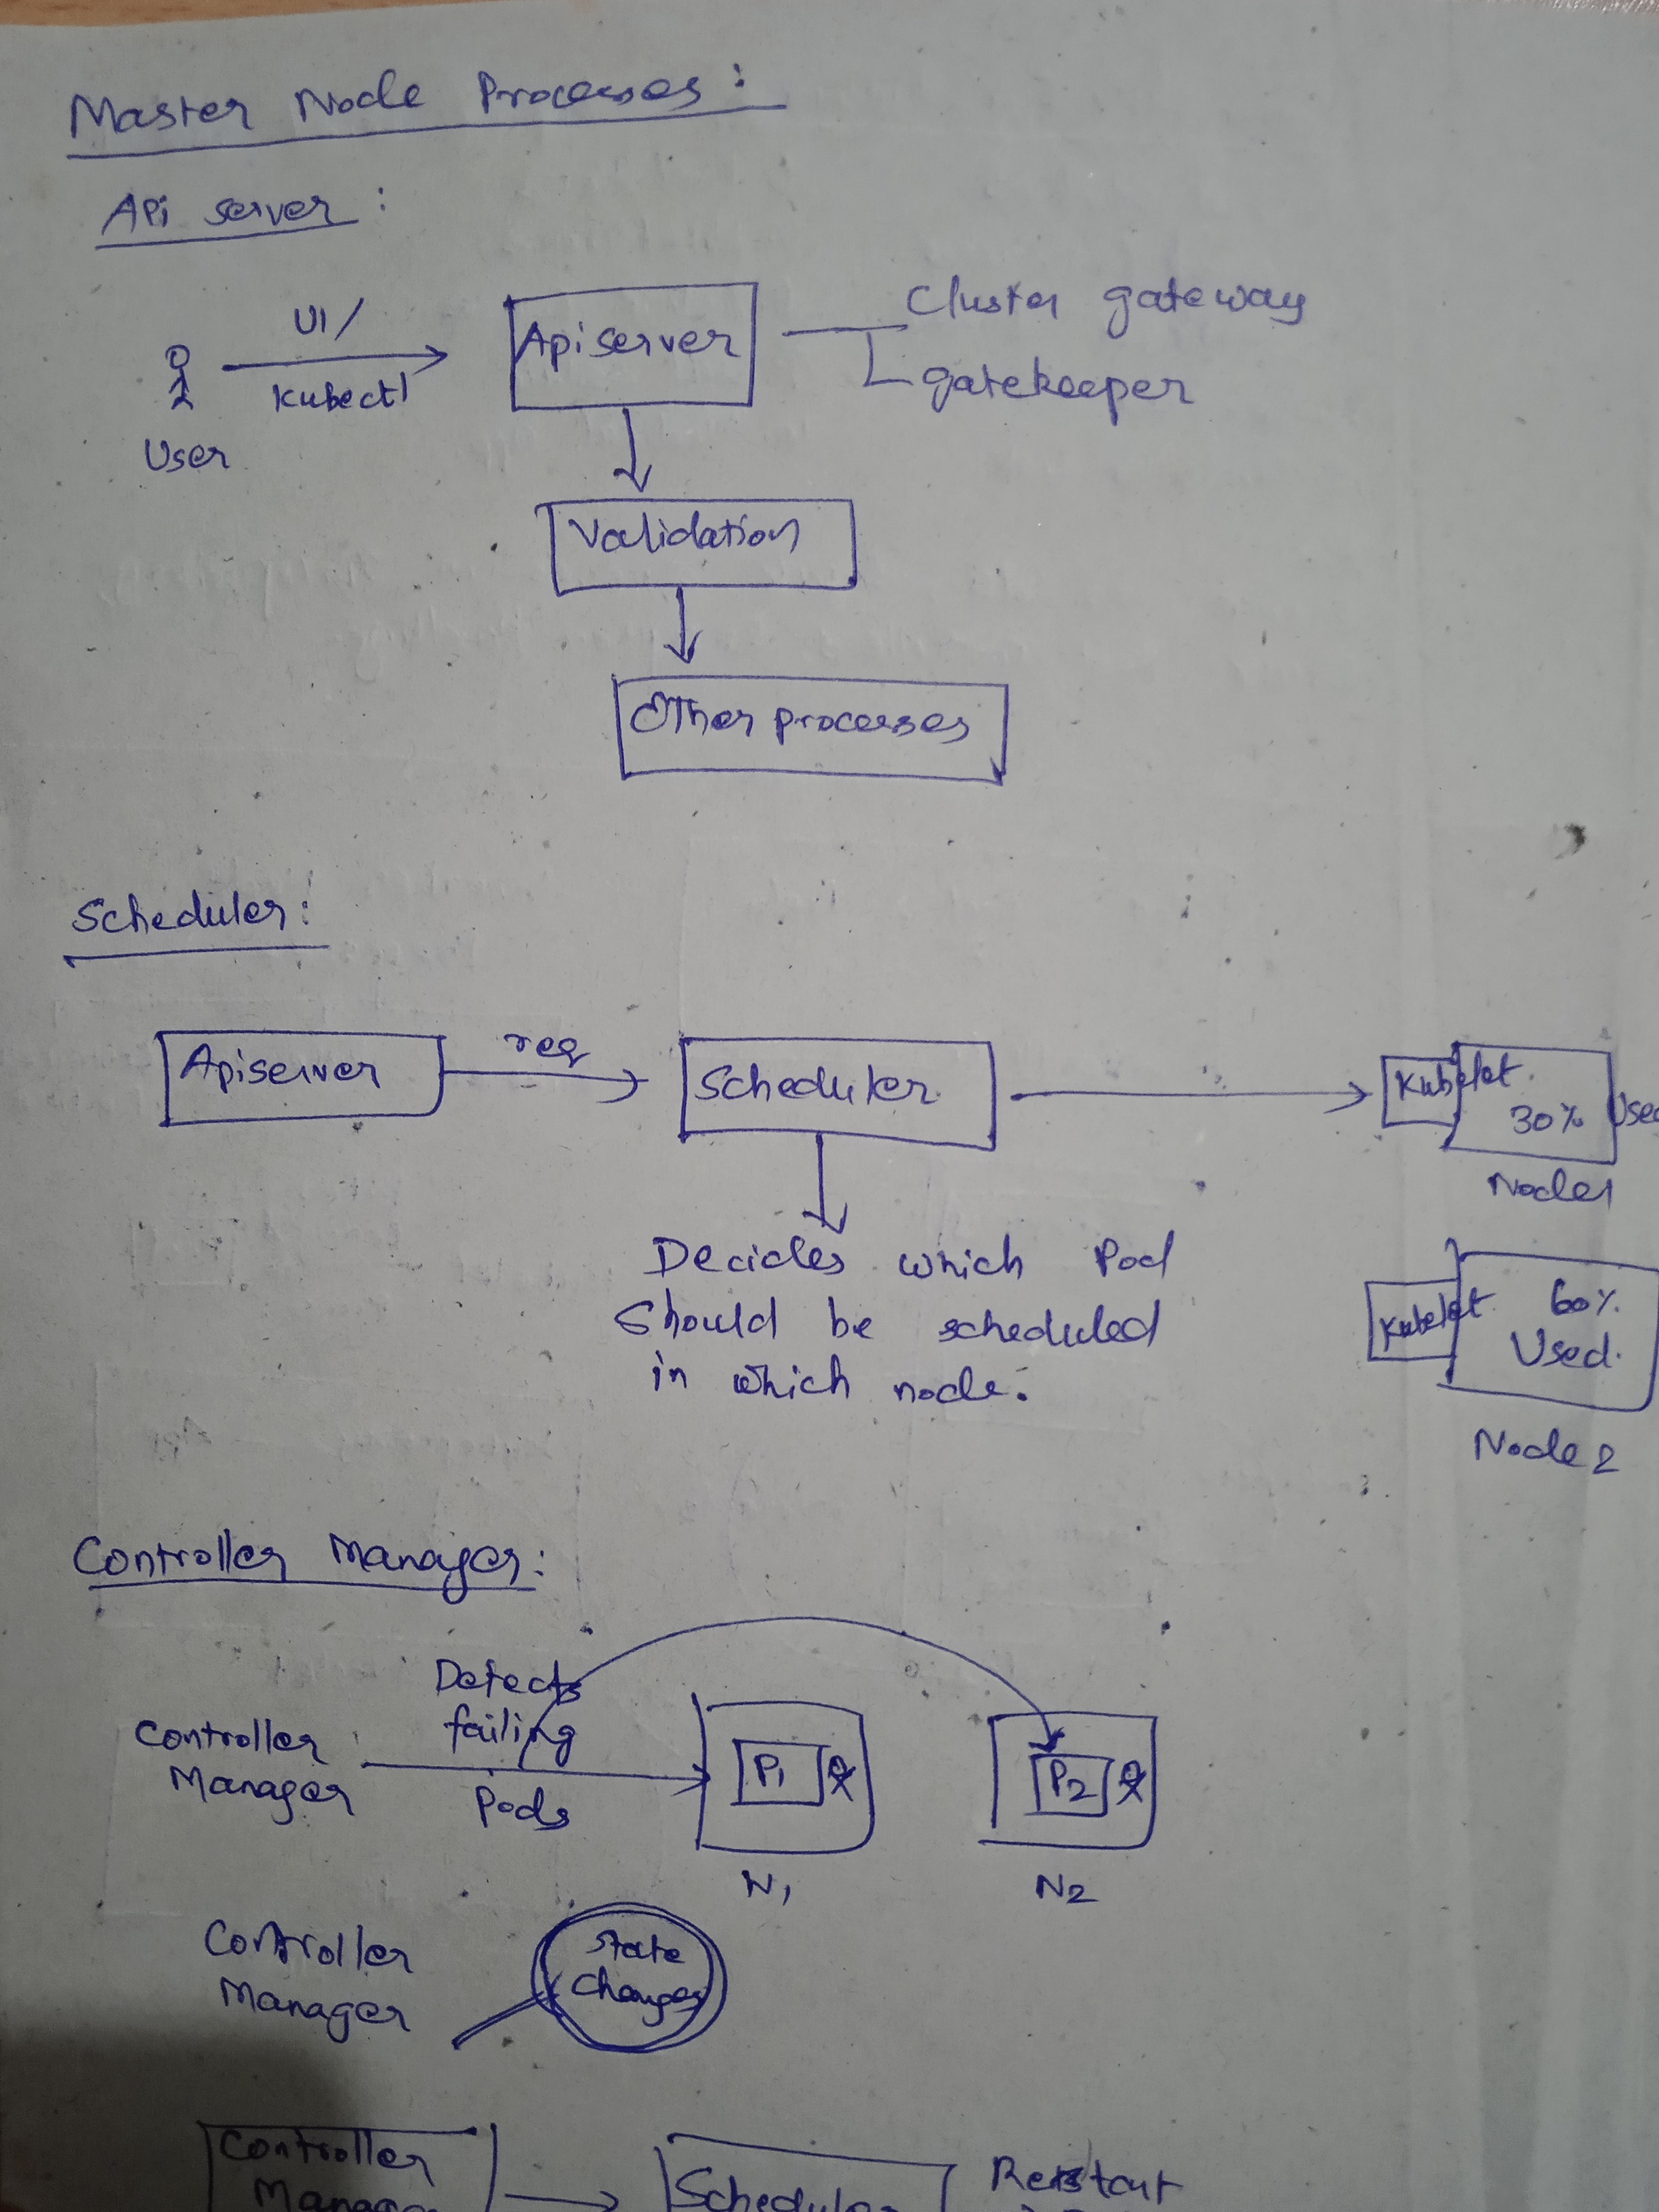 Master Node Processes:
Api server:
UI/
Kubectl
User
Apiserver
Cluster gateway
gatekeeper
Validation
Other processes
Scheduler:
Apiserver
req
Scheduler
Kubelet
30% Used
Node1
Decides which Pod
Should be scheduled
in which node.
Kubelet
60%
Used.
Node 2
Controller Manager:
Detects
failing
Pods
Controller
Manager
P1
N1
P2
N2
Controller
Manager
State
Changes
Controller
Manager
Scheduler
Restart